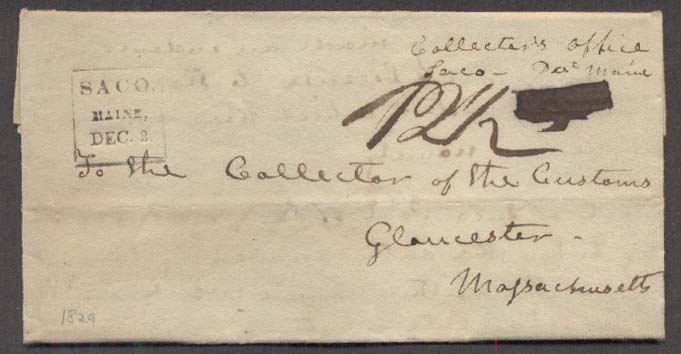 Collector's Office
Saco - Maine
SACO.
MAINE,
DEC. 2.
12½
To the Collector of the Customs
Gloucester -
Massachusetts
1829